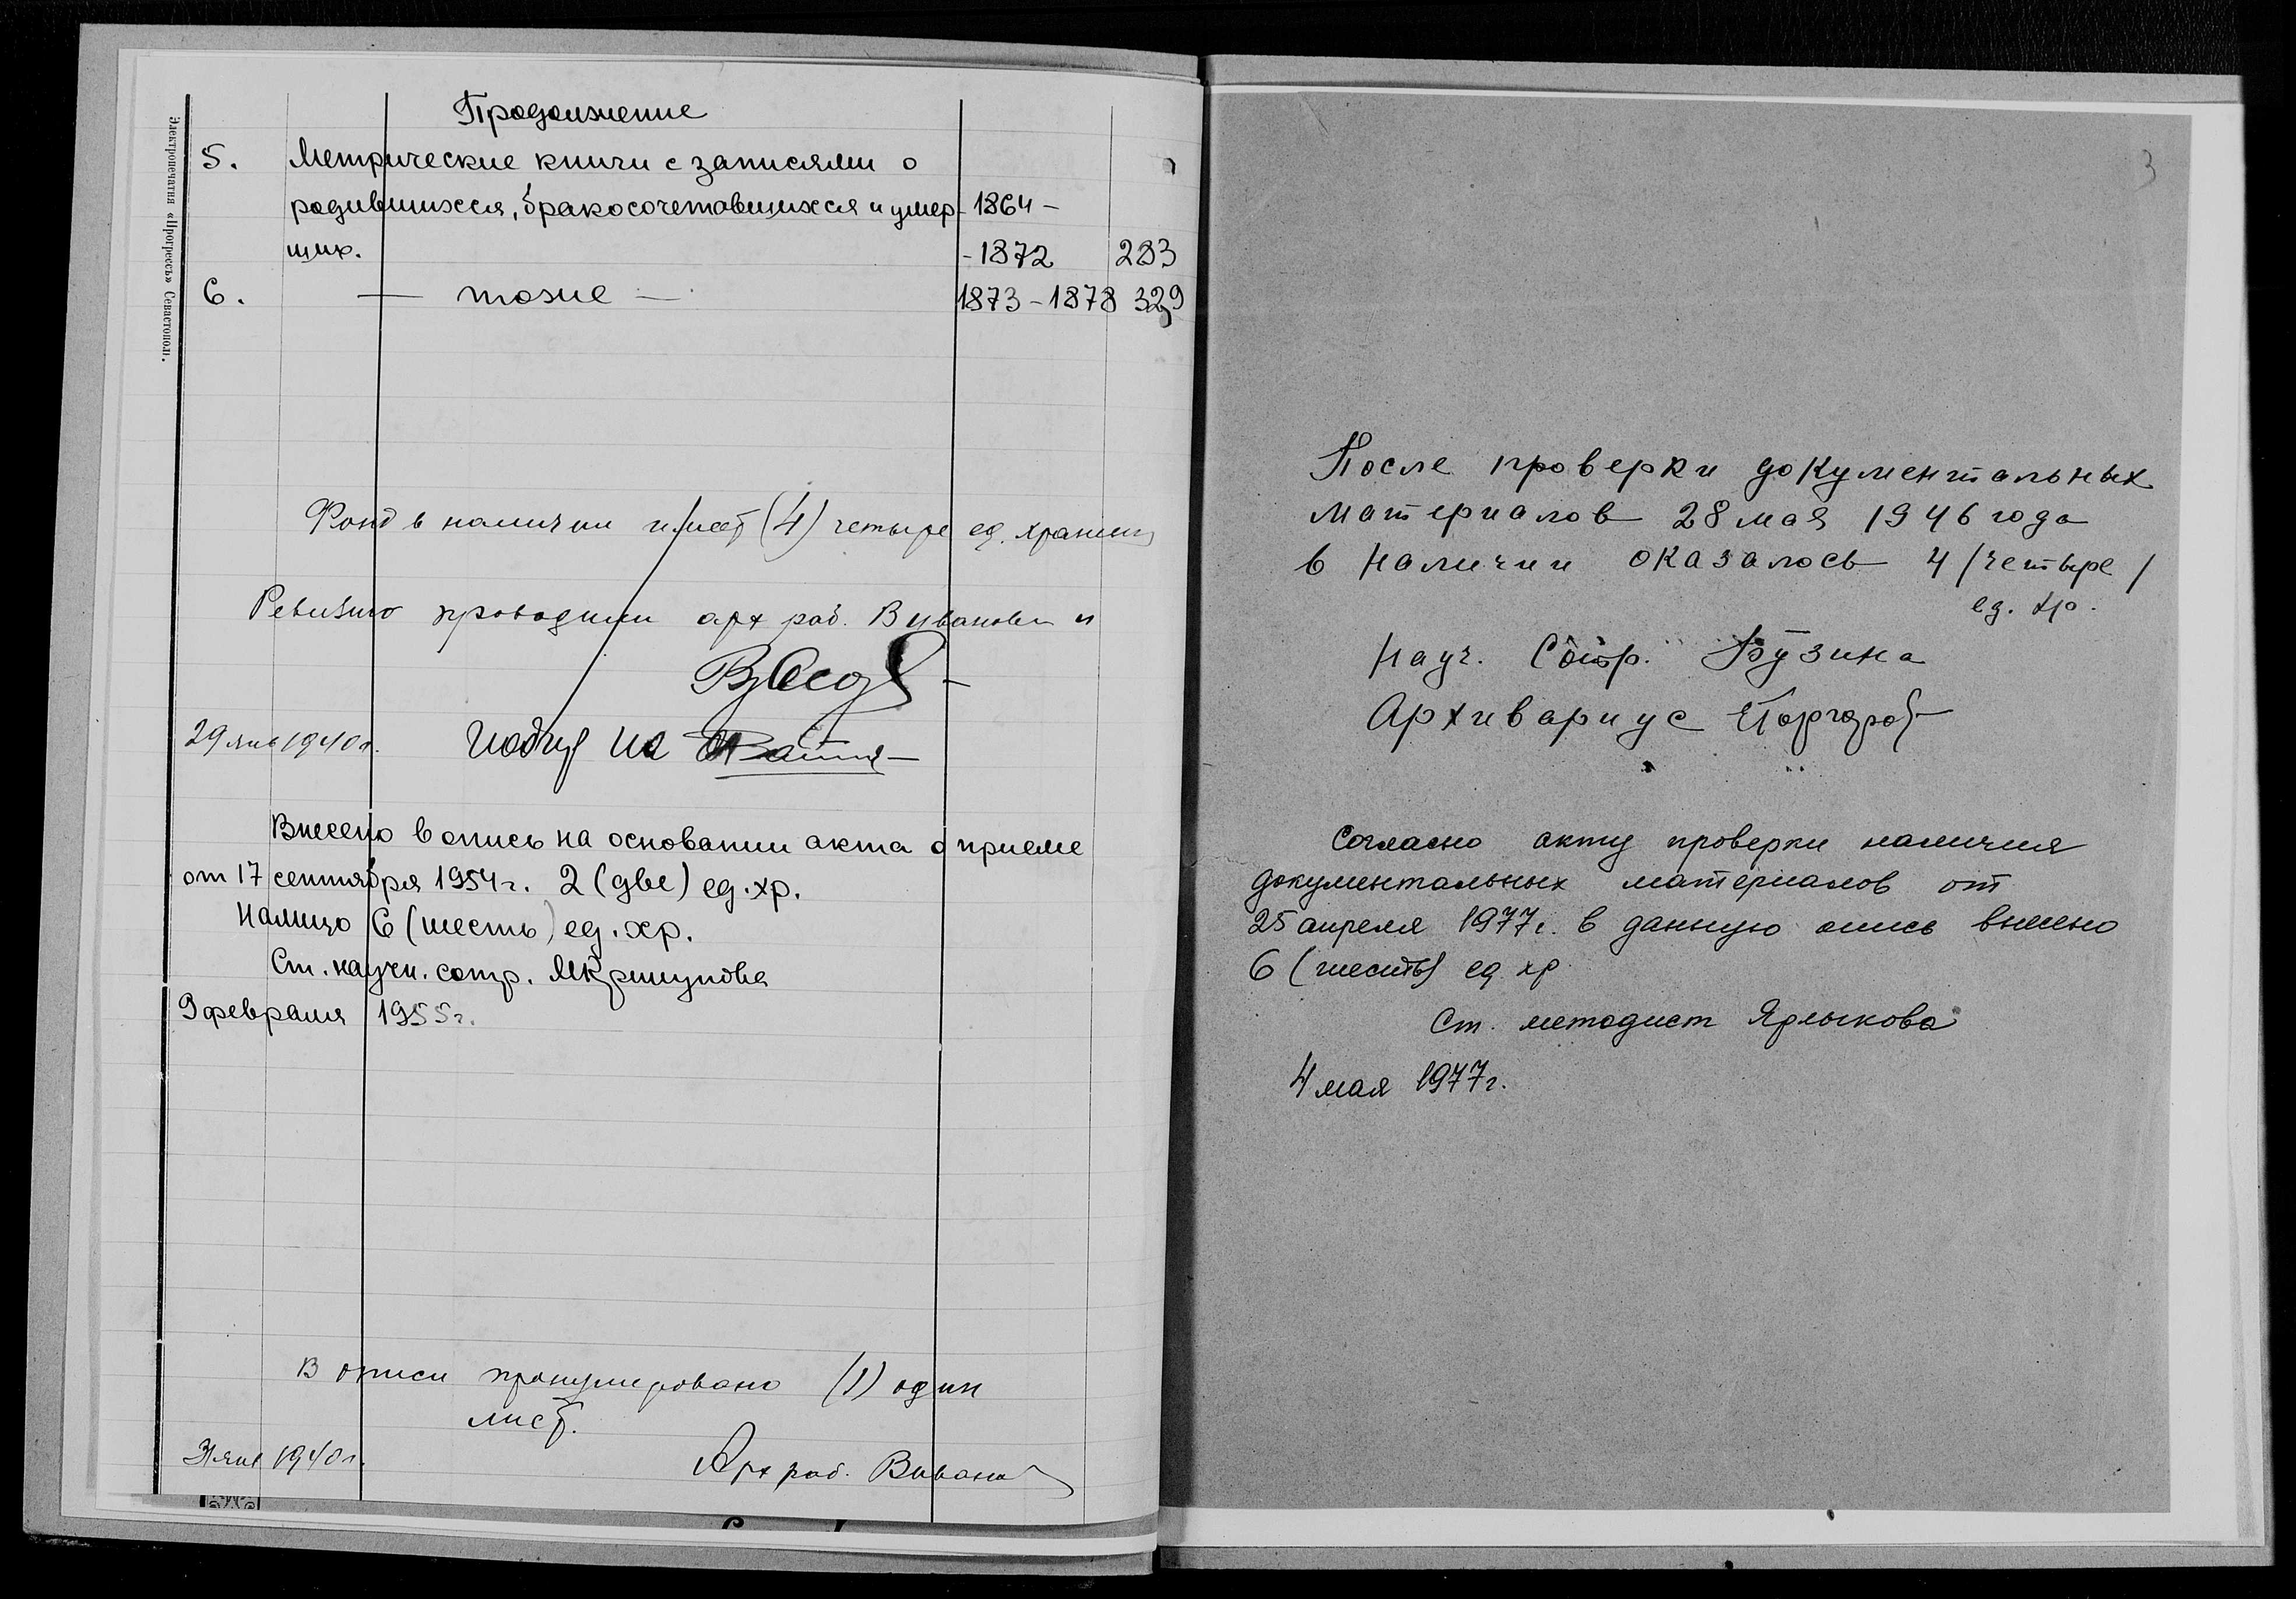 Продолжение
5. Метрические книги с записями о
родившихся, бракосочетавшихся и умер- 1864 -
ших. - 1872 283
6. — тоже — 1873 - 1878 329
Электропечатня «Прогрессъ» Севастополь.
Фонд в наличии имеет (4) четыре ед. хранения
Ревизию проводили арх раб. В Иванова и
29 янв 1940 г.
Внесено в опись на основании акта о приеме
от 17 сентября 1954 г. 2 (две) ед. хр.
Налицо 6 (шесть) ед. хр.
Ст. научн. сотр.
9 февраля 1955 г.
В описи пронумеровано (1) один
лист.
31 янв 1940 г. Арх раб. В Иванов
3
После проверки документальных
материалов 28 мая 1946 года
в наличии оказалось 4 /четыре/
ед. хр.
Науч. Сотр. Бузина
Архивариус
Согласно акту проверки наличия
документальных материалов от
25 апреля 1977 г. в данную опись внесено
6 (шесть) ед. хр.
Ст. методист Ярлыкова
4 мая 1977 г.